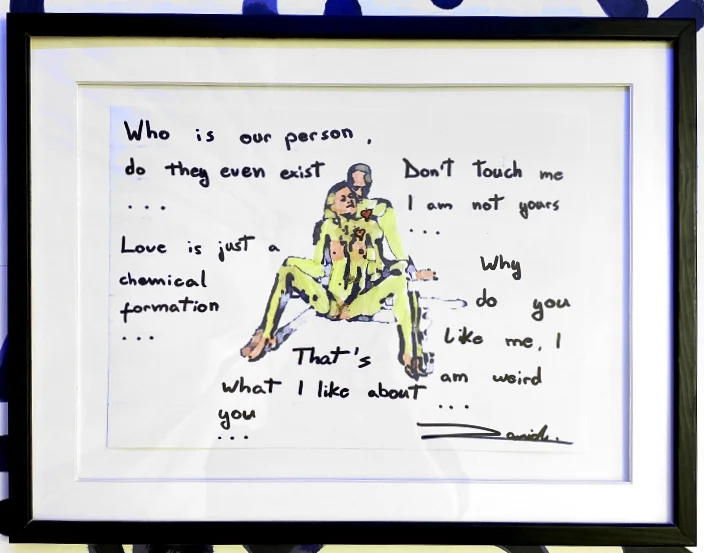 Who is our person,
do they even exist
...
Love is just a
chemical
formation
...
Don't touch me
I am not yours
...
Why
do you
like me, I
am weird
...
That's
what I like about
you
...